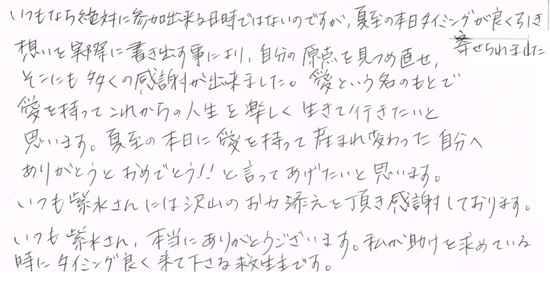 いつもなら絶対に参加出来る日時ではないのですが、夏至の本日タイミングが良く引き
寄せられました
想いを実際に書き出す事により、自分の原点を見つめ直せ、
そこにも多くの感謝が出来ました。愛という名のもとで
愛を持ってこれからの人生を楽しく生きて行きたいと
思います。夏至の本日に愛を持って産まれ変わった自分へ
ありがとうとおめでとう!!と言ってあげたいと思います。
いつも紫水さんには沢山のお力添えを頂き感謝しております。
いつも紫水さん、本当にありがとうございます。私が助けを求めている
時にタイミング良く来て下さる救生主です。